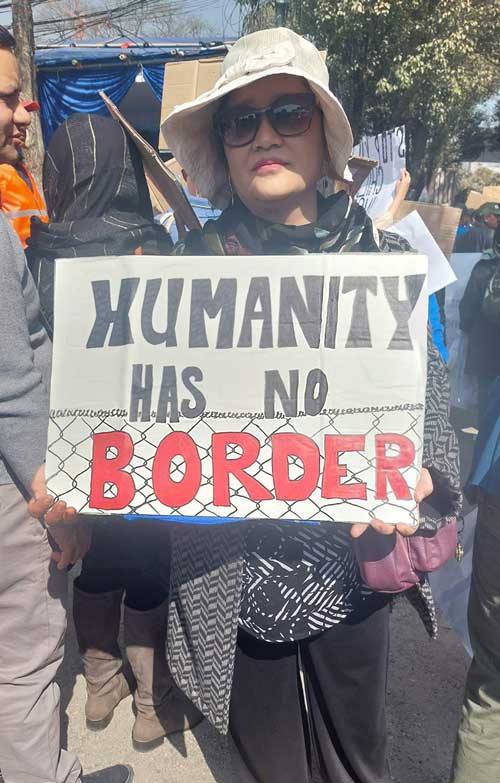 HUMANITY
HAS NO
BORDER
STOP